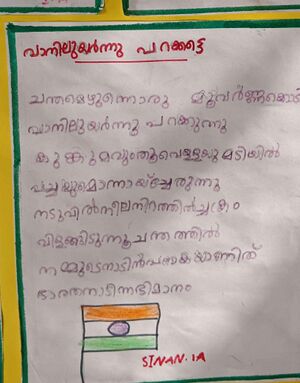 വാനിലുയർന്നു പറക്കട്ടെ
ചന്തമെഴുന്നൊരു മൂവർണ്ണക്കൊടി
വാനിലുയർന്നു പറക്കുന്നു
കുങ്കുമവുംതൂവെള്ളയുമടിയിൽ
പച്ചയുമൊന്നായ്ച്ചേരുന്നു
നടുവിൽനീലനിറത്തിൽച്ചക്രം
വിളങ്ങിടുന്നൂചന്തത്തിൽ
നമ്മുടെനാടിൻപതാകയാണിത്
ഭാരതനാടിന്നഭിമാനം
SINAN. 1A